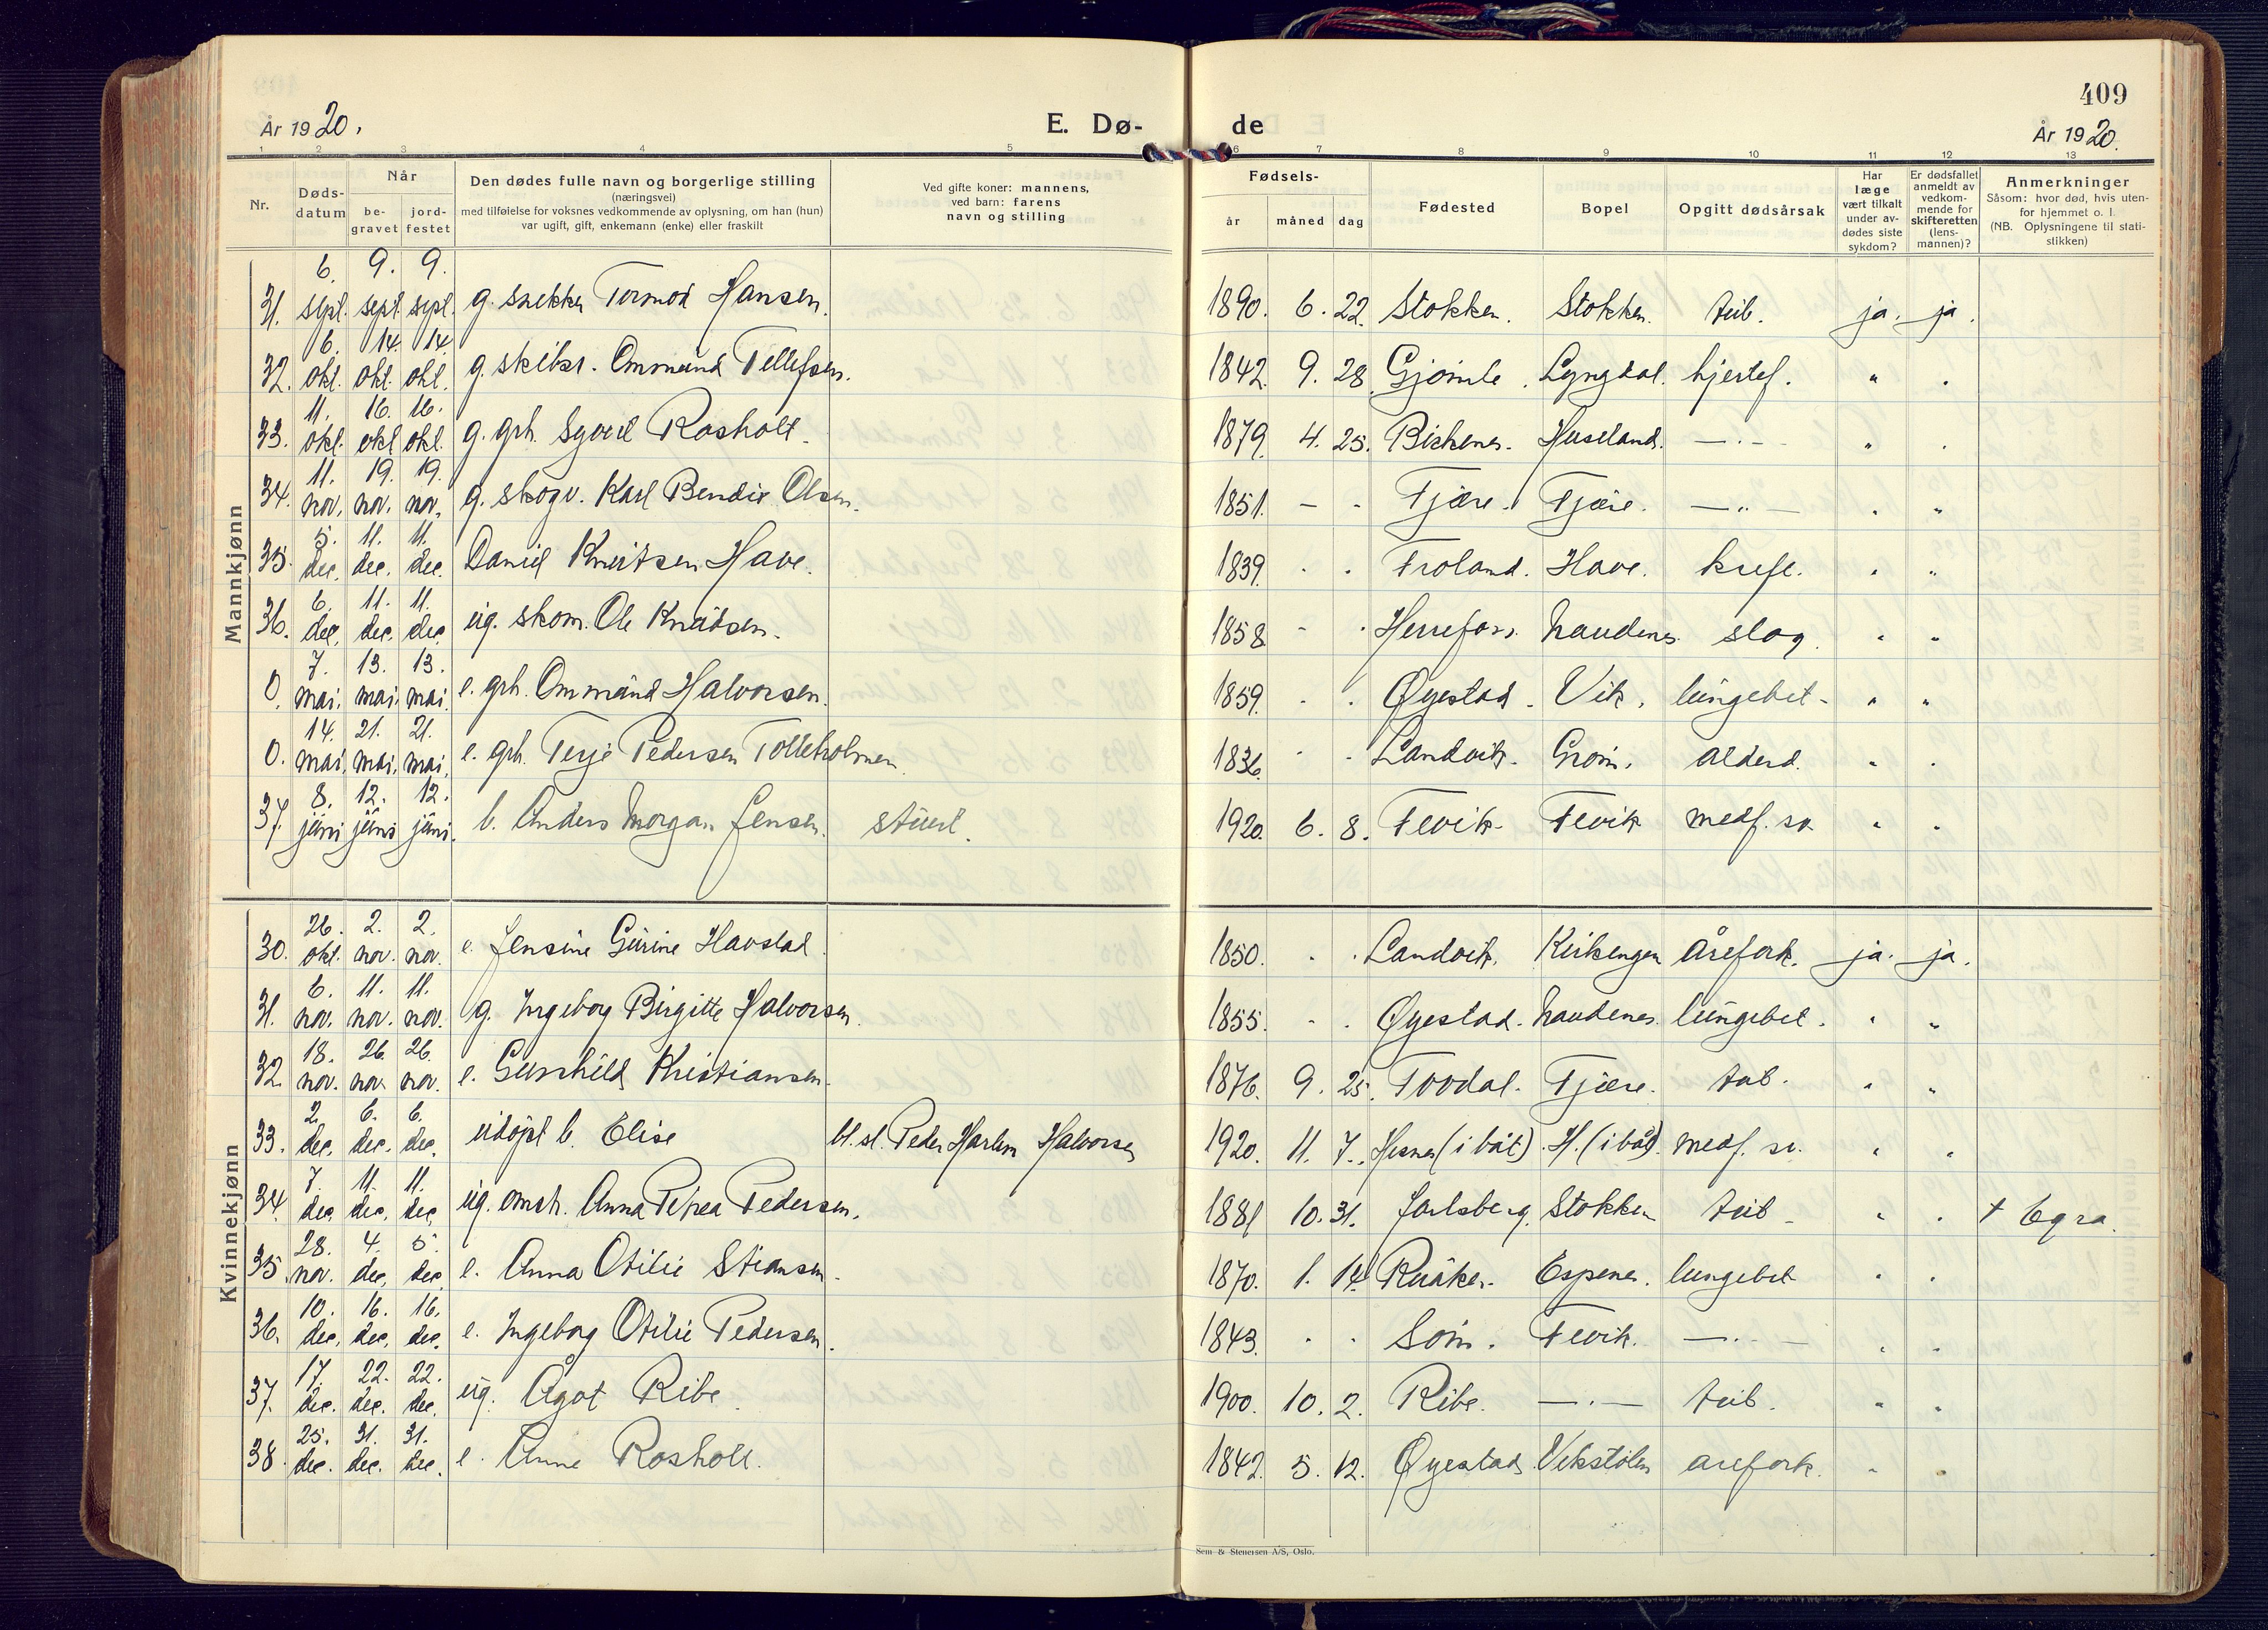 409
År 1920. E. Dø- de År 1920.
1 2 3 4 5 6 7 8 9 10 11 12 13
Nr. Døds-datum Når be-gravet jord-festet Den dødes fulle navn og borgerlige stilling (næringsvei) med tilføielse for voksnes vedkommende av oplysning, om han (hun) var ugift, gift, enkemann (enke) eller fraskilt Ved gifte koner: mannens, ved barn: farens navn og stilling Fødsels- år måned dag Fødested Bopel Opgitt dødsårsak Har læge vært tilkalt under av-dødes siste sykdom? Er dødsfallet anmeldt av vedkom-mende for skifteretten (lens-mannen)? Anmerkninger Såsom: hvor død, hvis uten-for hjemmet o. l. (NB. Oplysningene til stati-stikken)
Mannkjønn
31. 6. sept. 9. sept. 9. sept. g. snekker Tormod Hansen. 1890. 6. 22. Stokken. Stokken. tub. ja. ja.
32. 6. okt. 14. okt. 14. okt. g. skibsr. Ommund Tellefsen. 1842. 9. 28. Gjømle. Lyngdal. hjertef. " .
33. 11. okt. 16. okt. 16. okt. g. grh. Syvert Rosholt. 1879. 4. 25. Birkenes. Huseland. —.— " .
34. 11. nov. 19. nov. 19. nov. g. skogv. Karl Bendix Olsen. 1851. - - Fjære. Fjære. —"— . "
35. 5. dec. 11. dec. 11. dec. Daniel Knutsen Have. 1839. . . Froland. Have. kreft. . "
36. 6. dec. 11. dec. 11. dec. ug. skom. Ole Knudsen. 1858. - . Herrefoss. Naudenes. slag. . "
0. 7. mai. 13. mai. 13. mai. e. grh. Ommund Halvorsen. 1859. . . Øyestad. Vik. lungebet. " "
0. 14. mai. 21. mai. 21. mai. e. grh. Terje Pedersen Tolleholmen. 1836. . . Landvik. Grøm. alderd. " .
37. 8. juni 12. juni 12. juni. b. Anders Morgan Jensen. stuert. 1920. 6. 8. Fevik. Fevik medf. sv. " "
Kvinnekjønn
30. 26. okt. 2. nov. 2. nov. e. Jensine Gurine Havstad. 1850. . . Landvik. Kirkengen årefork. ja. ja.
31. 6. nov. 11. nov. 11. nov. g. Ingeborg Birgitte Halvorsen. 1855. . . Øyestad. Naudenes. lungebet. . "
32. 18. nov. 26. nov. 26. nov. e. Gunhild Kristiansen. 1876. 9. 25. Tovdal. Fjære. tub. " "
33. 2. dec. 6. dec. 6. dec. udøpt b. Elise Peder Halvorsen 1920. 11. 7. Hesnes (i båt). H. (i båt). medf. sv. . .
34. 7. dec. 11. dec. 11. dec. ug. Anna Petrea Pedersen. 1881 10. 31. Jarlsberg. Stokken tub. " . † Egra.
35. 28. nov. 4. dec. 5. dec. e. Anna Otilie Stiansen. 1870. 1. 14. Ruåker. Espenes. lungebet . .
36. 10. dec. 16. dec. 16. dec. e. Ingeborg Otilie Pedersen. 1843. . . Søm. Fevik. —.— . .
37. 17. dec. 22. dec. 22. dec. ug. Ågot Ribe 1900. 10. 2. Ribe. —.— tub. " "
38. 25. dec. 31. dec. 31. dec. e. Anne Rosholt. 1842. 5. 12. Øyestad Vikstølen arefork. " .
Sem & Stenersen A/S, Oslo.